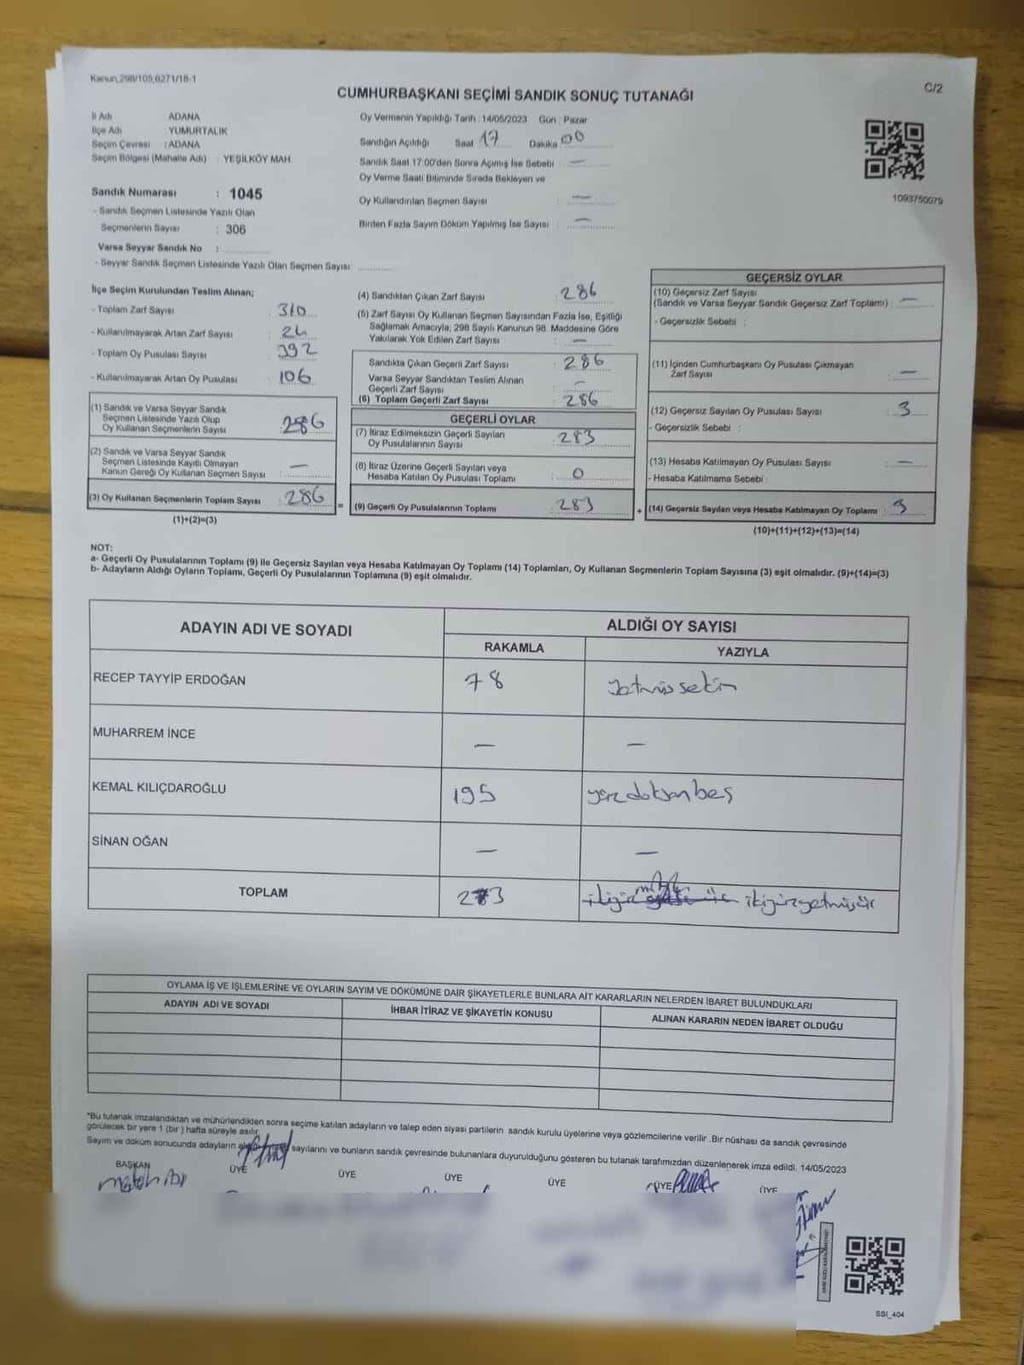 Kanun,298/105,6271/18-1
C/2
CUMHURBAŞKANI SEÇİMİ SANDIK SONUÇ TUTANAĞI
İl Adı ADANA
İlçe Adı YUMURTALIK
Seçim Çevresi : ADANA
Seçim Bölgesi (Mahalle Adı) : YEŞİLKÖY MAH.
Oy Vermenin Yapıldığı Tarih : 14/05/2023 Gün : Pazar
Sandığın Açıldığı Saat 17 Dakika 00
Sandık Saat 17:00'den Sonra Açımış İse Sebebi : —
Oy Verme Saati Bitiminde Sırada Bekleyen ve
Oy Kullandırılan Seçmen Sayısı : —
Birden Fazla Sayım Döküm Yapılmış İse Sayısı : —
1093750079
Sandık Numarası : 1045
- Sandık Seçmen Listesinde Yazılı Olan
Seçmenlerin Sayısı : 306
Varsa Seyyar Sandık No :
- Seyyar Sandık Seçmen Listesinde Yazılı Olan Seçmen Sayısı
İlçe Seçim Kurulundan Teslim Alınan;
- Toplam Zarf Sayısı : 310
- Kullanılmayarak Artan Zarf Sayısı : 24
- Toplam Oy Pusulası Sayısı : 392
- Kullanılmayarak Artan Oy Pusulası : 106
(1) Sandık ve Varsa Seyyar Sandık
Seçmen Listesinde Yazılı Olup
Oy Kullanan Seçmenlerin Sayısı : 286
(2) Sandık ve Varsa Seyyar Sandık
Seçmen Listesinde Kayıtlı Olmayan
Kanun Gereği Oy Kullanan Seçmen Sayısı : —
(3) Oy Kullanan Seçmenlerin Toplam Sayısı : 286 =
(1)+(2)=(3)
(4) Sandıktan Çıkan Zarf Sayısı : 286
(5) Zarf Sayısı Oy Kullanan Seçmen Sayısından Fazla İse, Eşitliği
Sağlamak Amacıyla, 298 Sayılı Kanunun 98. Maddesine Göre
Yakılarak Yok Edilen Zarf Sayısı : —
Sandıkta Çıkan Geçerli Zarf Sayısı : 286
Varsa Seyyar Sandıktan Teslim Alınan
Geçerli Zarf Sayısı : —
(6) Toplam Geçerli Zarf Sayısı : 286
GEÇERLİ OYLAR
(7) İtiraz Edilmeksizin Geçerli Sayılan
Oy Pusulalarının Sayısı : 283
(8) İtiraz Üzerine Geçerli Sayılan veya
Hesaba Katılan Oy Pusulası Toplamı : 0
(9) Geçerli Oy Pusulalarının Toplamı : 283 +
GEÇERSİZ OYLAR
(10) Geçersiz Zarf Sayısı
(Sandık ve Varsa Seyyar Sandık Geçersiz Zarf Toplamı) : —
- Geçersizlik Sebebi :
(11) İçinden Cumhurbaşkanı Oy Pusulası Çıkmayan
Zarf Sayısı : —
(12) Geçersiz Sayılan Oy Pusulası Sayısı : 3
- Geçersizlik Sebebi :
(13) Hesaba Katılmayan Oy Pusulası Sayısı : —
- Hesaba Katılmama Sebebi :
(14) Geçersiz Sayılan veya Hesaba Katılmayan Oy Toplamı : 3
(10)+(11)+(12)+(13)=(14)
NOT:
a- Geçerli Oy Pusulalarının Toplamı (9) ile Geçersiz Sayılan veya Hesaba Katılmayan Oy Toplamı (14) Toplamları, Oy Kullanan Seçmenlerin Toplam Sayısına (3) eşit olmalıdır. (9)+(14)=(3)
b- Adayların Aldığı Oyların Toplamı, Geçerli Oy Pusulalarının Toplamına (9) eşit olmalıdır.
ADAYIN ADI VE SOYADI ALDIĞI OY SAYISI
RAKAMLA YAZIYLA
RECEP TAYYİP ERDOĞAN 78 yetmişsekiz
MUHARREM İNCE — —
KEMAL KILIÇDAROĞLU 195 yüzdoksanbeş
SİNAN OĞAN — —
TOPLAM 273 ikiyüzyetmişüç
OYLAMA İŞ VE İŞLEMLERİNE VE OYLARIN SAYIM VE DÖKÜMÜNE DAİR ŞİKAYETLERLE BUNLARA AİT KARARLARIN NELERDEN İBARET BULUNDUKLARI
ADAYIN ADI VE SOYADI İHBAR İTİRAZ VE ŞİKAYETİN KONUSU ALINAN KARARIN NEDEN İBARET OLDUĞU
"Bu tutanak imzalandıktan ve mühürlendikten sonra seçime katılan adayların ve talep eden siyasi partilerin sandık kurulu üyelerine veya gözlemcilerine verilir .Bir nüshası da sandık çevresinde
görülecek bir yere 1 (bir ) hafta süreyle asılır.
Sayım ve döküm sonucunda adayların sayılarını ve bunların sandık çevresinde bulunanlara duyurulduğunu gösteren bu tutanak tarafımızdan düzenlenerek imza edildi. 14/05/2023
BAŞKAN ÜYE ÜYE ÜYE ÜYE ÜYE ÜYE
SSI_404